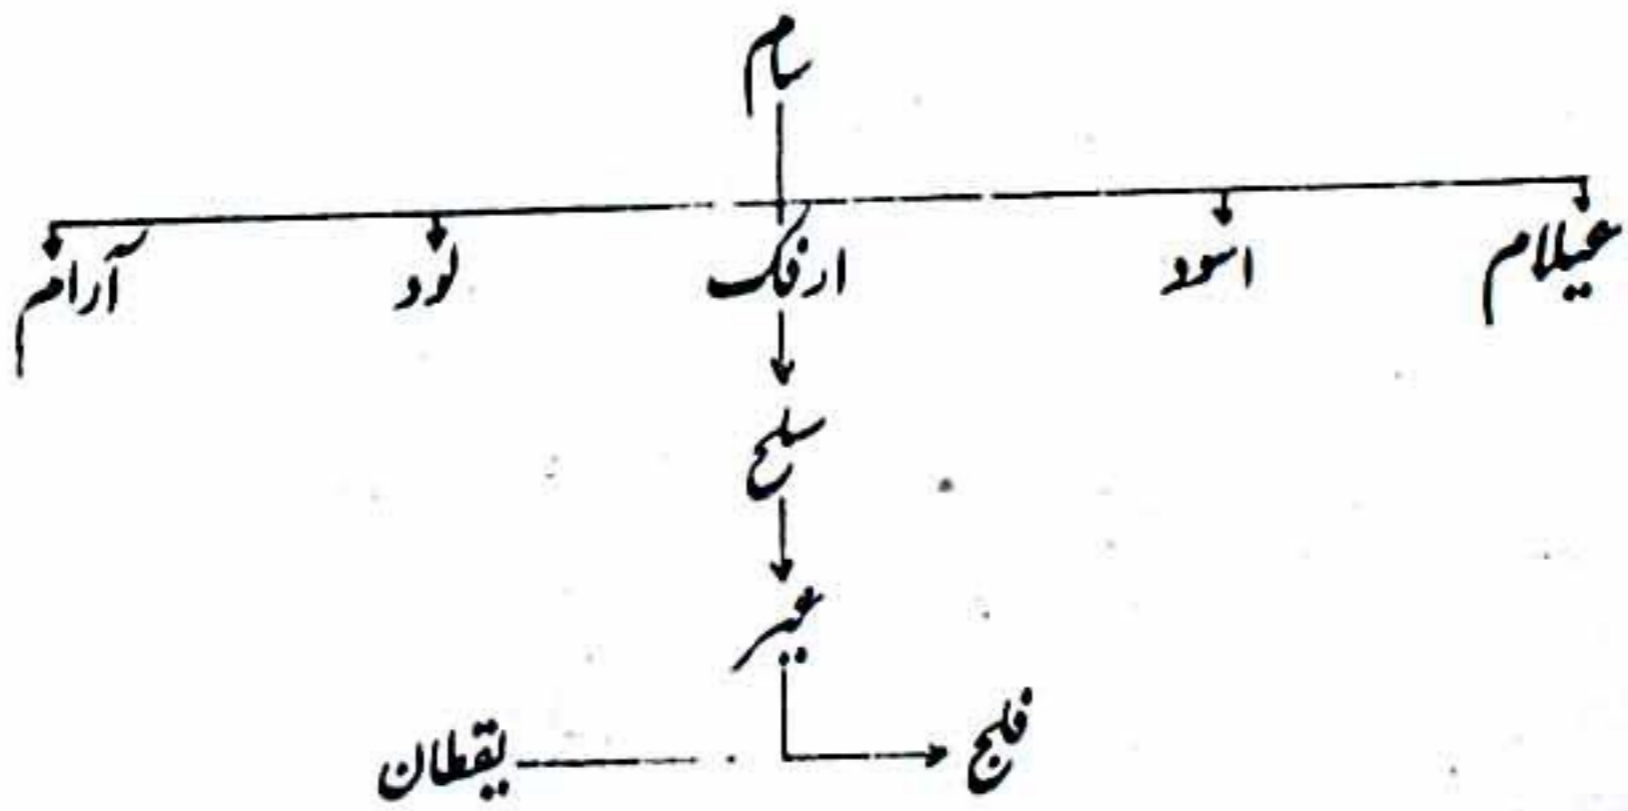 سام
عیلام اسود ارفک لود آرام
سلح
عیبر
فلج یقطان